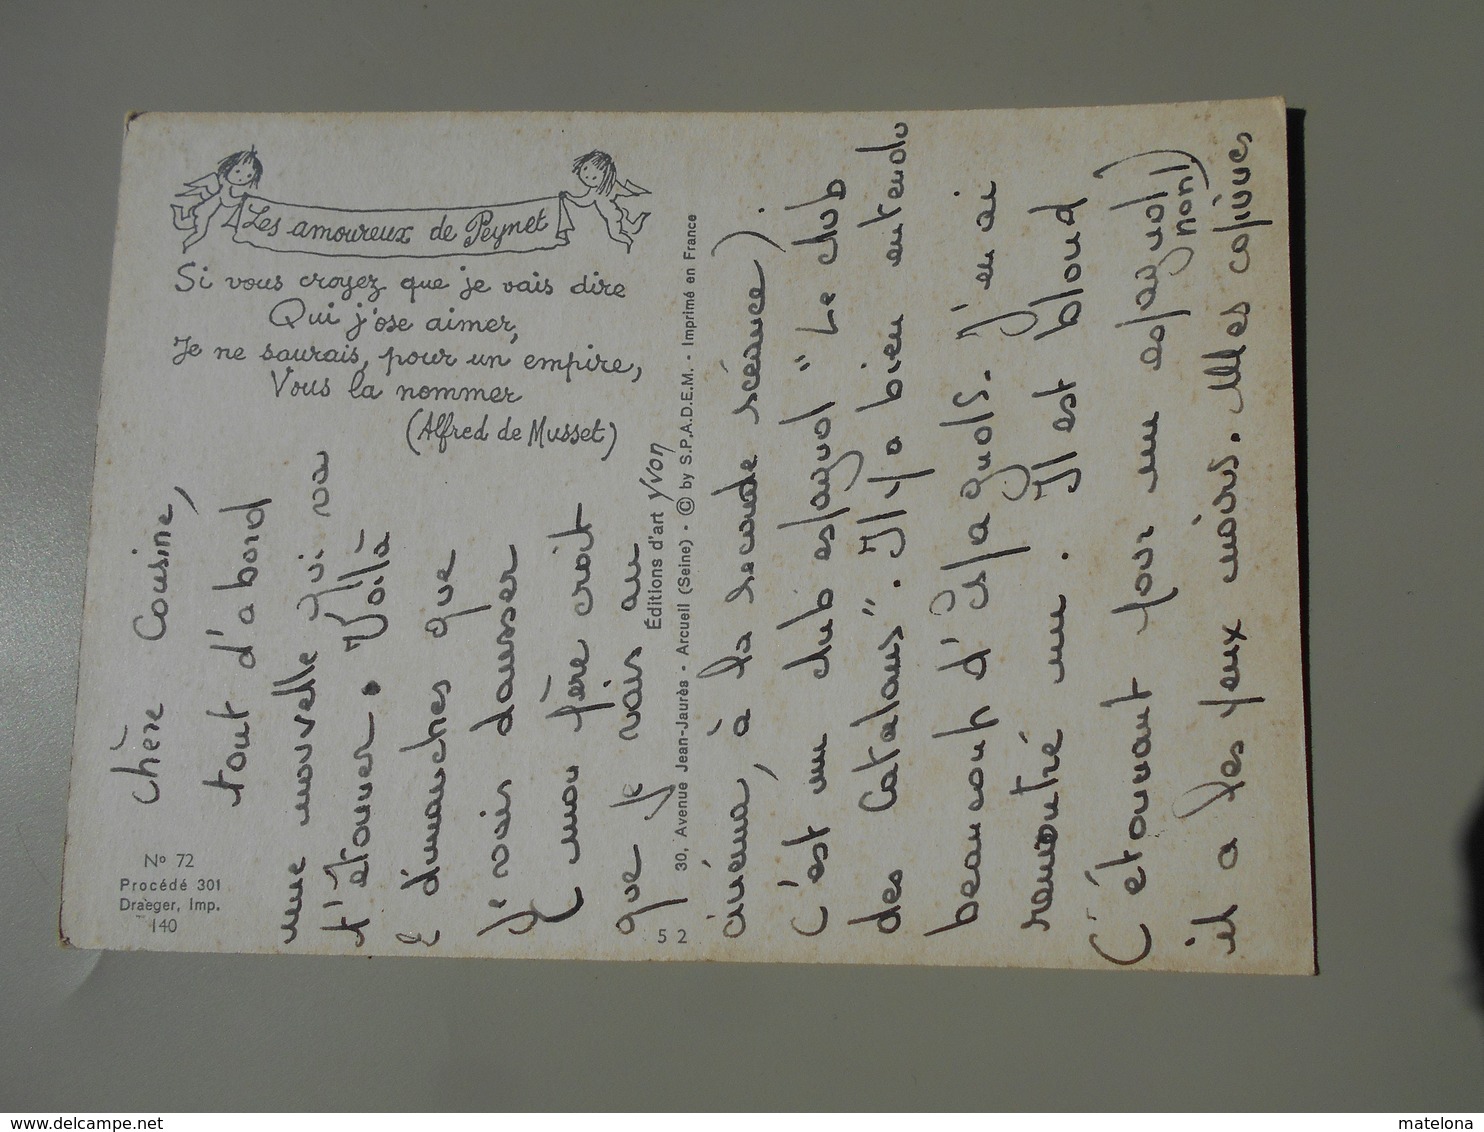 Les amoureux de Peynet
Si vous croyez que je vais dire
Qui j'ose aimer,
Je ne saurais, pour un empire,
Vous la nommer
(Alfred de Musset)
Nº 72
Procédé 301
Draeger, Imp.
140
Éditions d'art yvon
30, Avenue Jean-Jaurès - Arcueil (Seine) - © by S.P.A.D.E.M. - Imprimé en France
52
Chère Cousine,
tout d'abord
une nouvelle qui va
t'étonner. Voilà
2 dimanches que
j'vais danser
(mon père croit
que je vais au
cinéma, à la seconde scéance).
C'est un club espagnol "Le club
des Catalans". Il y a bien entendu
beaucoup d'Espagnols. J'en ai
remontré un. Il est blond
(C'étonnant pour un espagnol,
non!)
il a les yeux noirs. Mes copines
delcampe.net
matelona